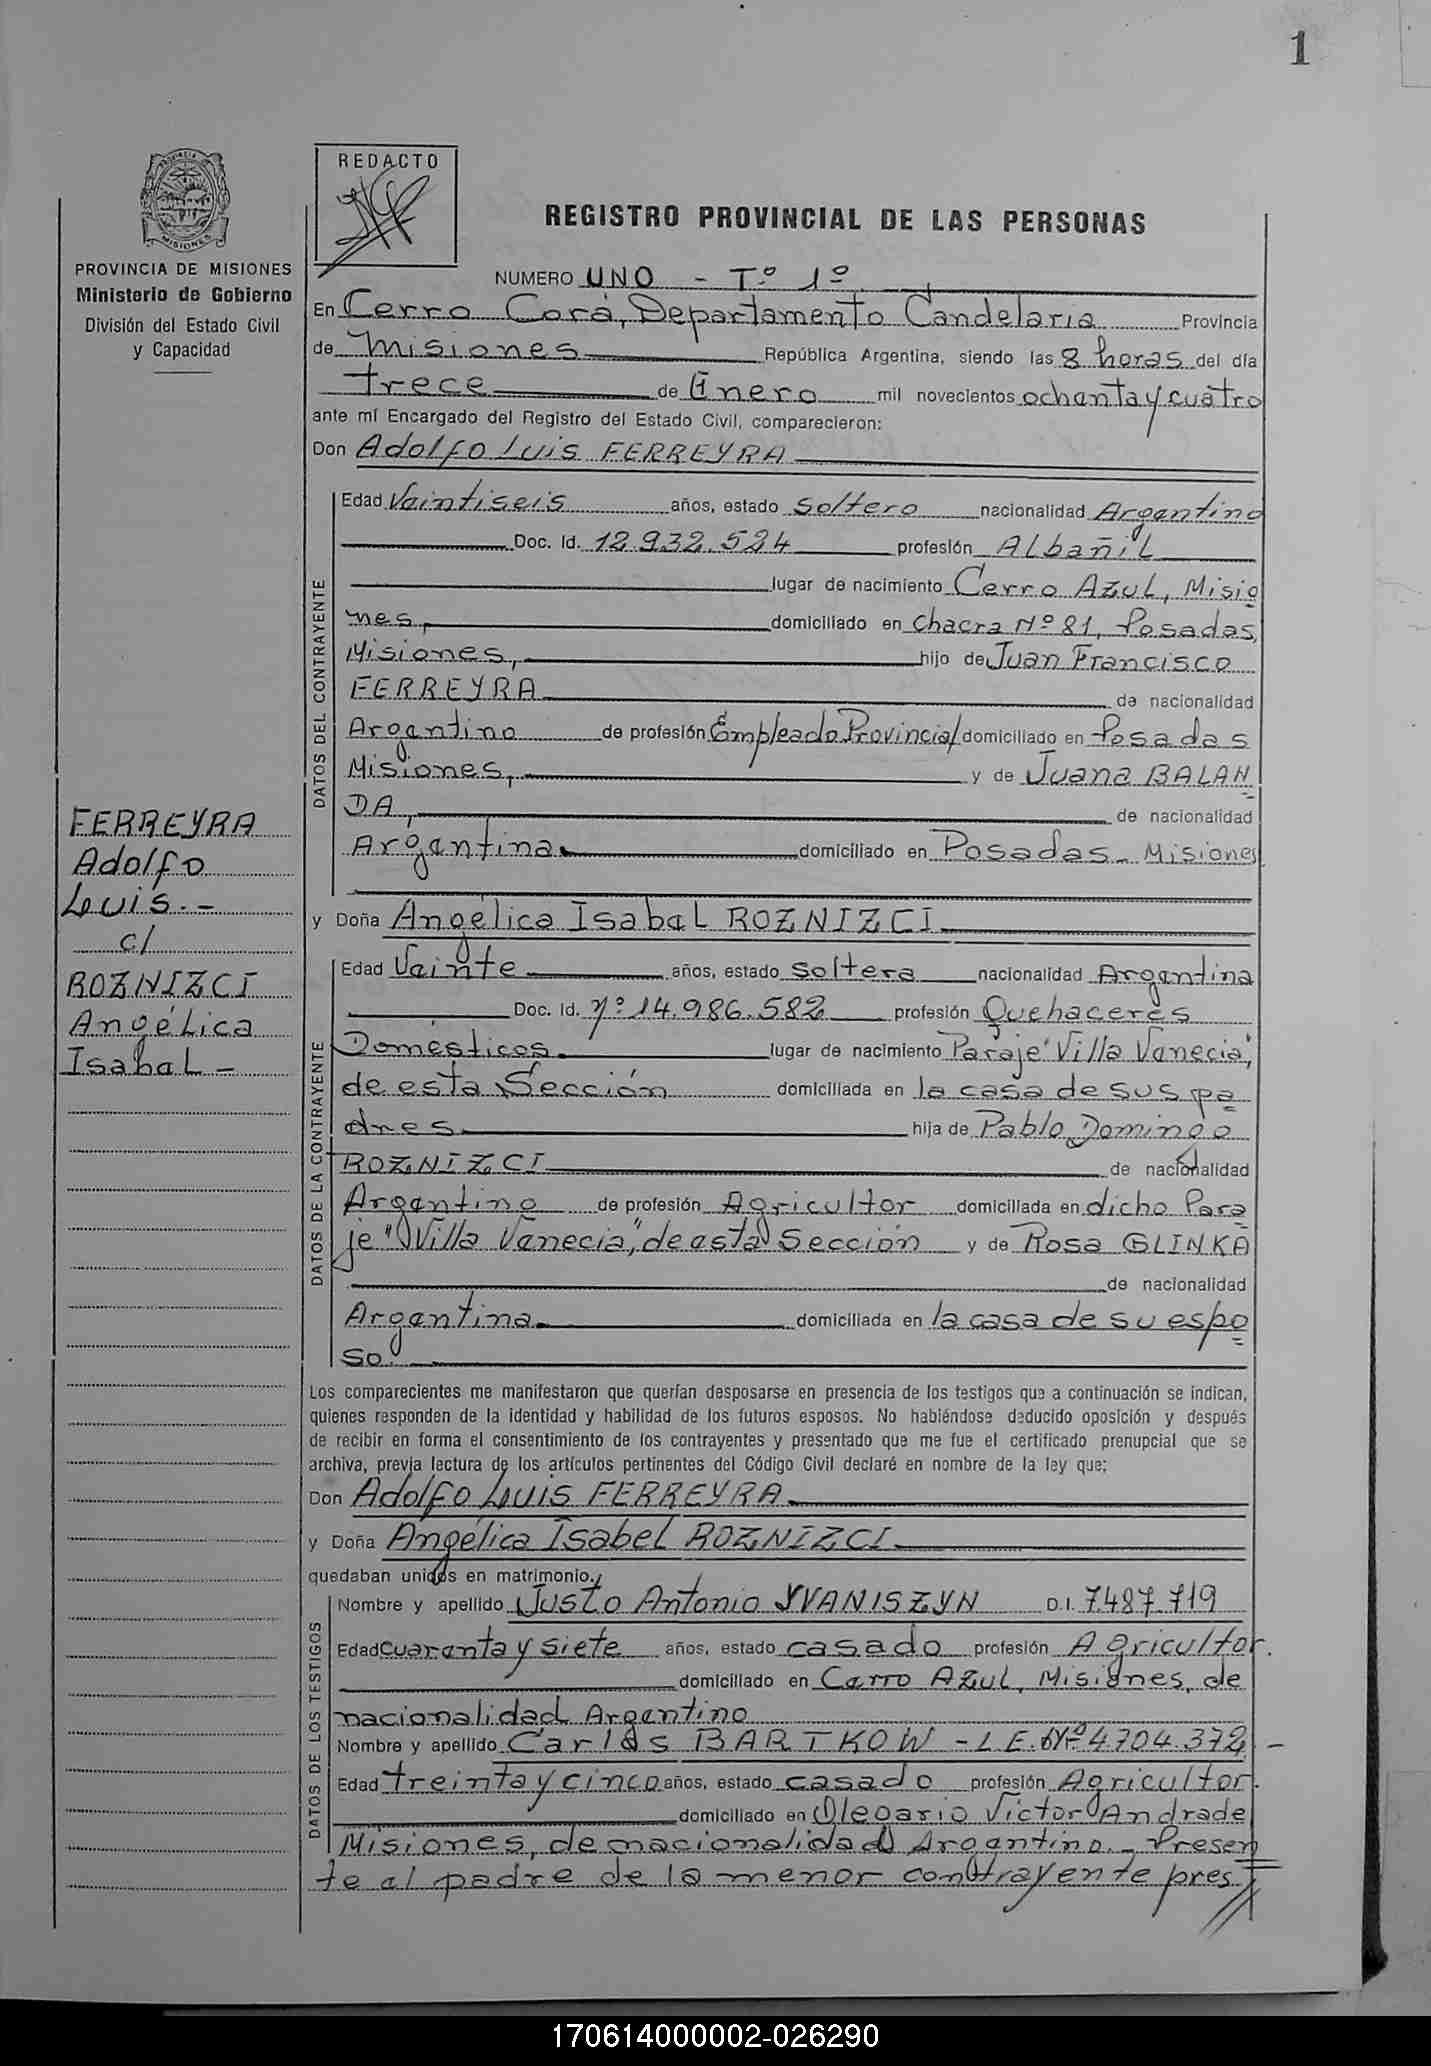 1
REDACTO
REGISTRO PROVINCIAL DE LAS PERSONAS
PROVINCIA DE MISIONES
Ministerio de Gobierno
División del Estado Civil
y Capacidad
NUMERO UNO - Tº 1º
En Cerro Corá, Departamento Candelaria Provincia
de Misiones República Argentina, siendo las 8 horas del día
trece de Enero mil novecientos ochenta y cuatro
ante mí Encargado del Registro del Estado Civil, comparecieron:
Don Adolfo Luis FERREYRA
DATOS DEL CONTRAYENTE
Edad Veintiseis años, estado soltero nacionalidad Argentino
Doc. Id. 12.932.524 profesión Albañil
lugar de nacimiento Cerro Azul, Misio
nes, domiciliado en Chacra Nº 81, Posadas,
Misiones, hijo de Juan Francisco
FERREYRA de nacionalidad
Argentino de profesión Empleado Provincial domiciliado en Posadas
Misiones, y de Juana BALAN
DA, de nacionalidad
Argentina domiciliado en Posadas - Misiones
FERREYRA
Adolfo
Luis.-
c/
ROZNIZCI
Angélica
Isabel -
y Doña Angélica Isabel ROZNIZCI
DATOS DE LA CONTRAYENTE
Edad Veinte años, estado soltera nacionalidad Argentina
Doc. Id. Nº 14.986.582 profesión Quehaceres
Domésticos lugar de nacimiento Paraje "Villa Venecia",
de esta Sección domiciliada en la casa de sus pa
dres hija de Pablo Domingo
ROZNIZCI de nacionalidad
Argentino de profesión Agricultor domiciliada en dicho Para
je "Villa Venecia", de esta Sección y de Rosa GLINKA
de nacionalidad
Argentina domiciliada en la casa de su espo
so.
Los comparecientes me manifestaron que querían desposarse en presencia de los testigos que a continuación se indican,
quienes responden de la identidad y habilidad de los futuros esposos. No habiéndose deducido oposición y después
de recibir en forma el consentimiento de los contrayentes y presentado que me fue el certificado prenupcial que se
archiva, previa lectura de los artículos pertinentes del Código Civil declaré en nombre de la ley que:
Don Adolfo Luis FERREYRA
y Doña Angélica Isabel ROZNIZCI
quedaban unidos en matrimonio.
DATOS DE LOS TESTIGOS
Nombre y apellido Justo Antonio YVANISZYN D.I. 7.487.719
Edad cuarenta y siete años, estado casado profesión Agricultor.
domiciliado en Cerro Azul, Misiones, de
nacionalidad Argentino
Nombre y apellido Carlos BARTKOW - L.E. Nº 4.704.372 -
Edad treinta y cinco años, estado casado profesión Agricultor.
domiciliado en Olegario Victor Andrade
Misiones, de nacionalidad Argentino.- Presen
te el padre de la menor contrayente pres
170614000002-026290